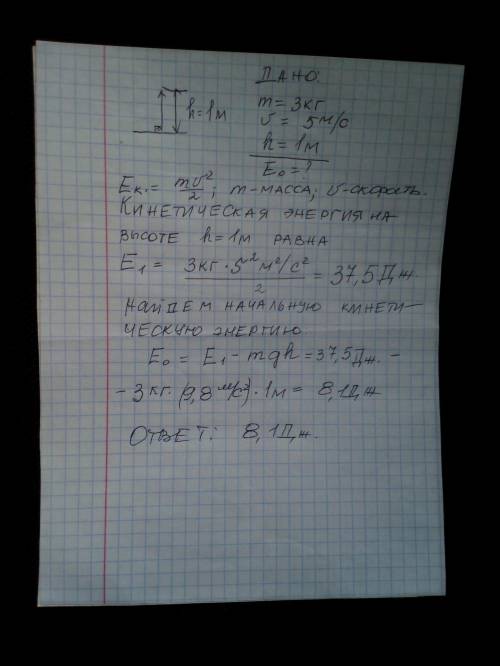 ДАНО:
h=1м
m=3кг
v= 5м/с
h=1м
E₀=?
Eк.= mv²/2; m-масса; v-скорость.
Кинетическая энергия на
высоте h=1м равна
E₁= 3кг·5²м²/с²/2 = 37,5Дж.
Найдем начальную кинети-
ческую энергию
E₀ = E₁-mgh=37,5Дж. -
- 3кг·(9,8м/с²)·1м= 8,1Дж
Ответ: 8,1Дж.